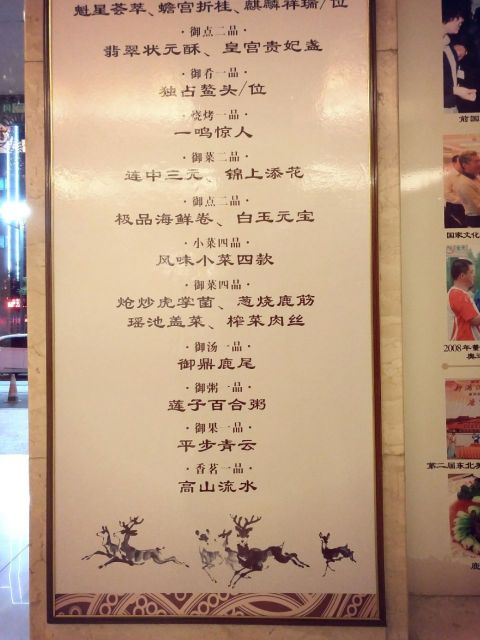 魁星荟萃、蟾宫折桂、麒麟祥瑞/位
·御点二品·
翡翠状元酥、皇宫贵妃盏
·御肴一品·
独占鳌头/位
·烧烤一品·
一鸣惊人
·御菜二品·
连中三元、锦上添花
·御点二品·
极品海鲜卷、白玉元宝
·小菜四品·
风味小菜四款
·御菜四品·
炝炒虎掌菌、葱烧鹿筋
瑶池盖菜、榨菜肉丝
·御汤一品·
御鼎鹿尾
·御粥一品·
莲子百合粥
·御果一品·
平步青云
·香茗一品·
高山流水
前国
国家文化
2008年
奥运
第二届东北
鹿